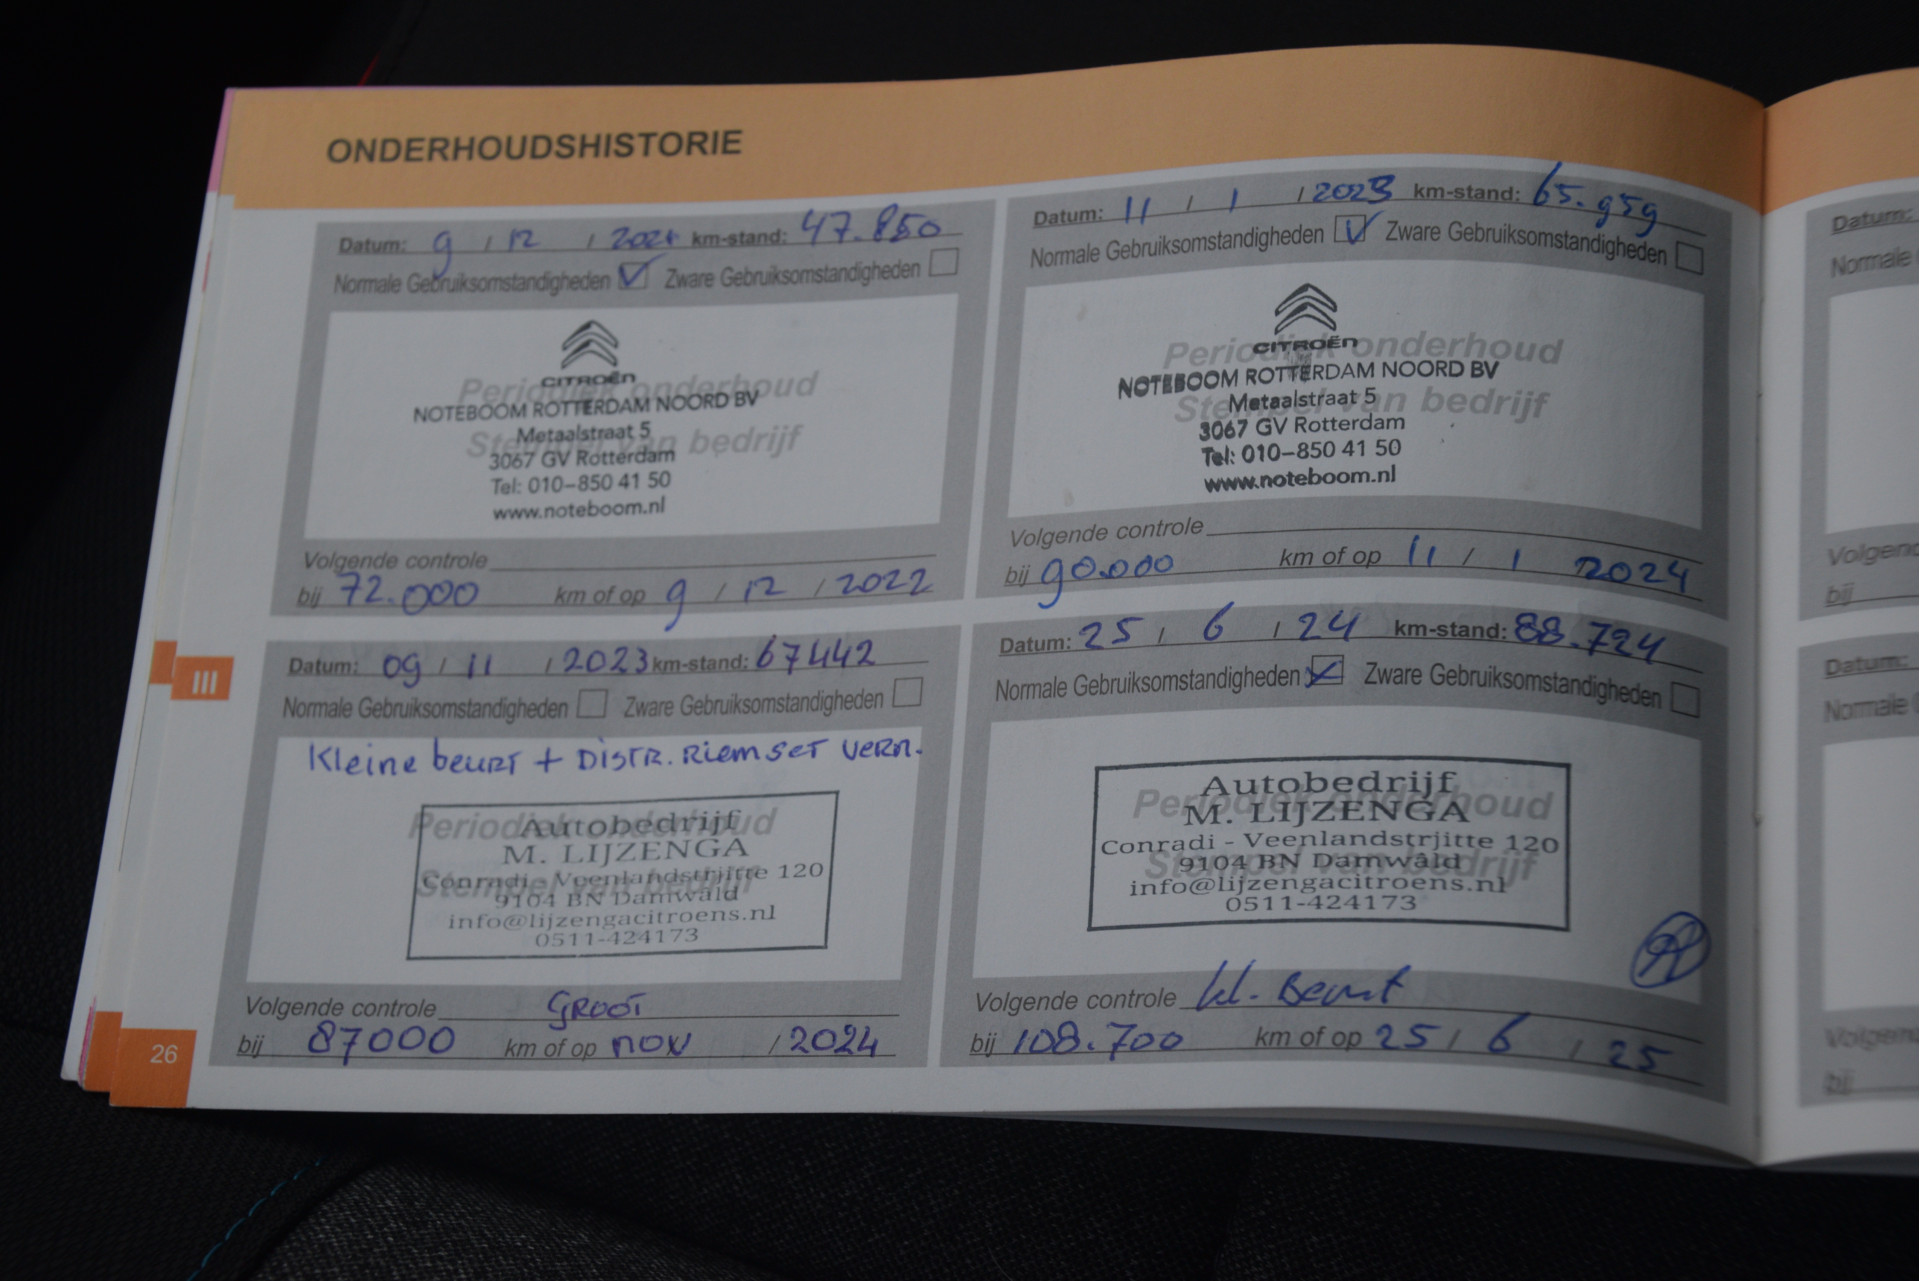 ONDERHOUDSHISTORIE
Datum: 9 / 12 / 2021 km-stand: 47.850
Normale Gebruiksomstandigheden Zware Gebruiksomstandigheden
CITROËN
Periodiek onderhoud
NOTEBOOM ROTTERDAM NOORD BV
Metaalstraat 5
Stempel van bedrijf
3067 GV Rotterdam
Tel: 010-850 41 50
www.noteboom.nl
Volgende controle
bij 72.000 km of op 9 / 12 / 2022
Datum: 11 / 1 / 2023 km-stand: 65.959
Normale Gebruiksomstandigheden Zware Gebruiksomstandigheden
CITROËN
Periodiek onderhoud
NOTEBOOM ROTTERDAM NOORD BV
Metaalstraat 5
Stempel van bedrijf
3067 GV Rotterdam
Tel: 010-850 41 50
www.noteboom.nl
Volgende controle
bij 90.000 km of op 11 / 1 2024
Datum: 09 / 11 / 2023 km-stand: 67442
Normale Gebruiksomstandigheden Zware Gebruiksomstandigheden
Kleine beurt + Distr. Riemset vern.
Periodiek onderhoud
Autobedrijf
M. LIJZENGA
Stempel van bedrijf
Conradi - Veenlandstrjitte 120
9104 BN Damwâld
info@lijzengacitroens.nl
0511-424173
Volgende controle GROOT
bij 87000 km of op nov / 2024
Datum: 25 / 6 / 24 km-stand: 88.724
Normale Gebruiksomstandigheden Zware Gebruiksomstandigheden
Autobedrijf
Periodiek onderhoud
M. LIJZENGA
Conradi - Veenlandstrjitte 120
Stempel van bedrijf
9104 BN Damwâld
info@lijzengacitroens.nl
0511-424173
Volgende controle kl. Beurt
bij 108.700 km of op 25 / 6 / 25
III
26
Datum:
Normale
bij
Datum:
Normale
bij